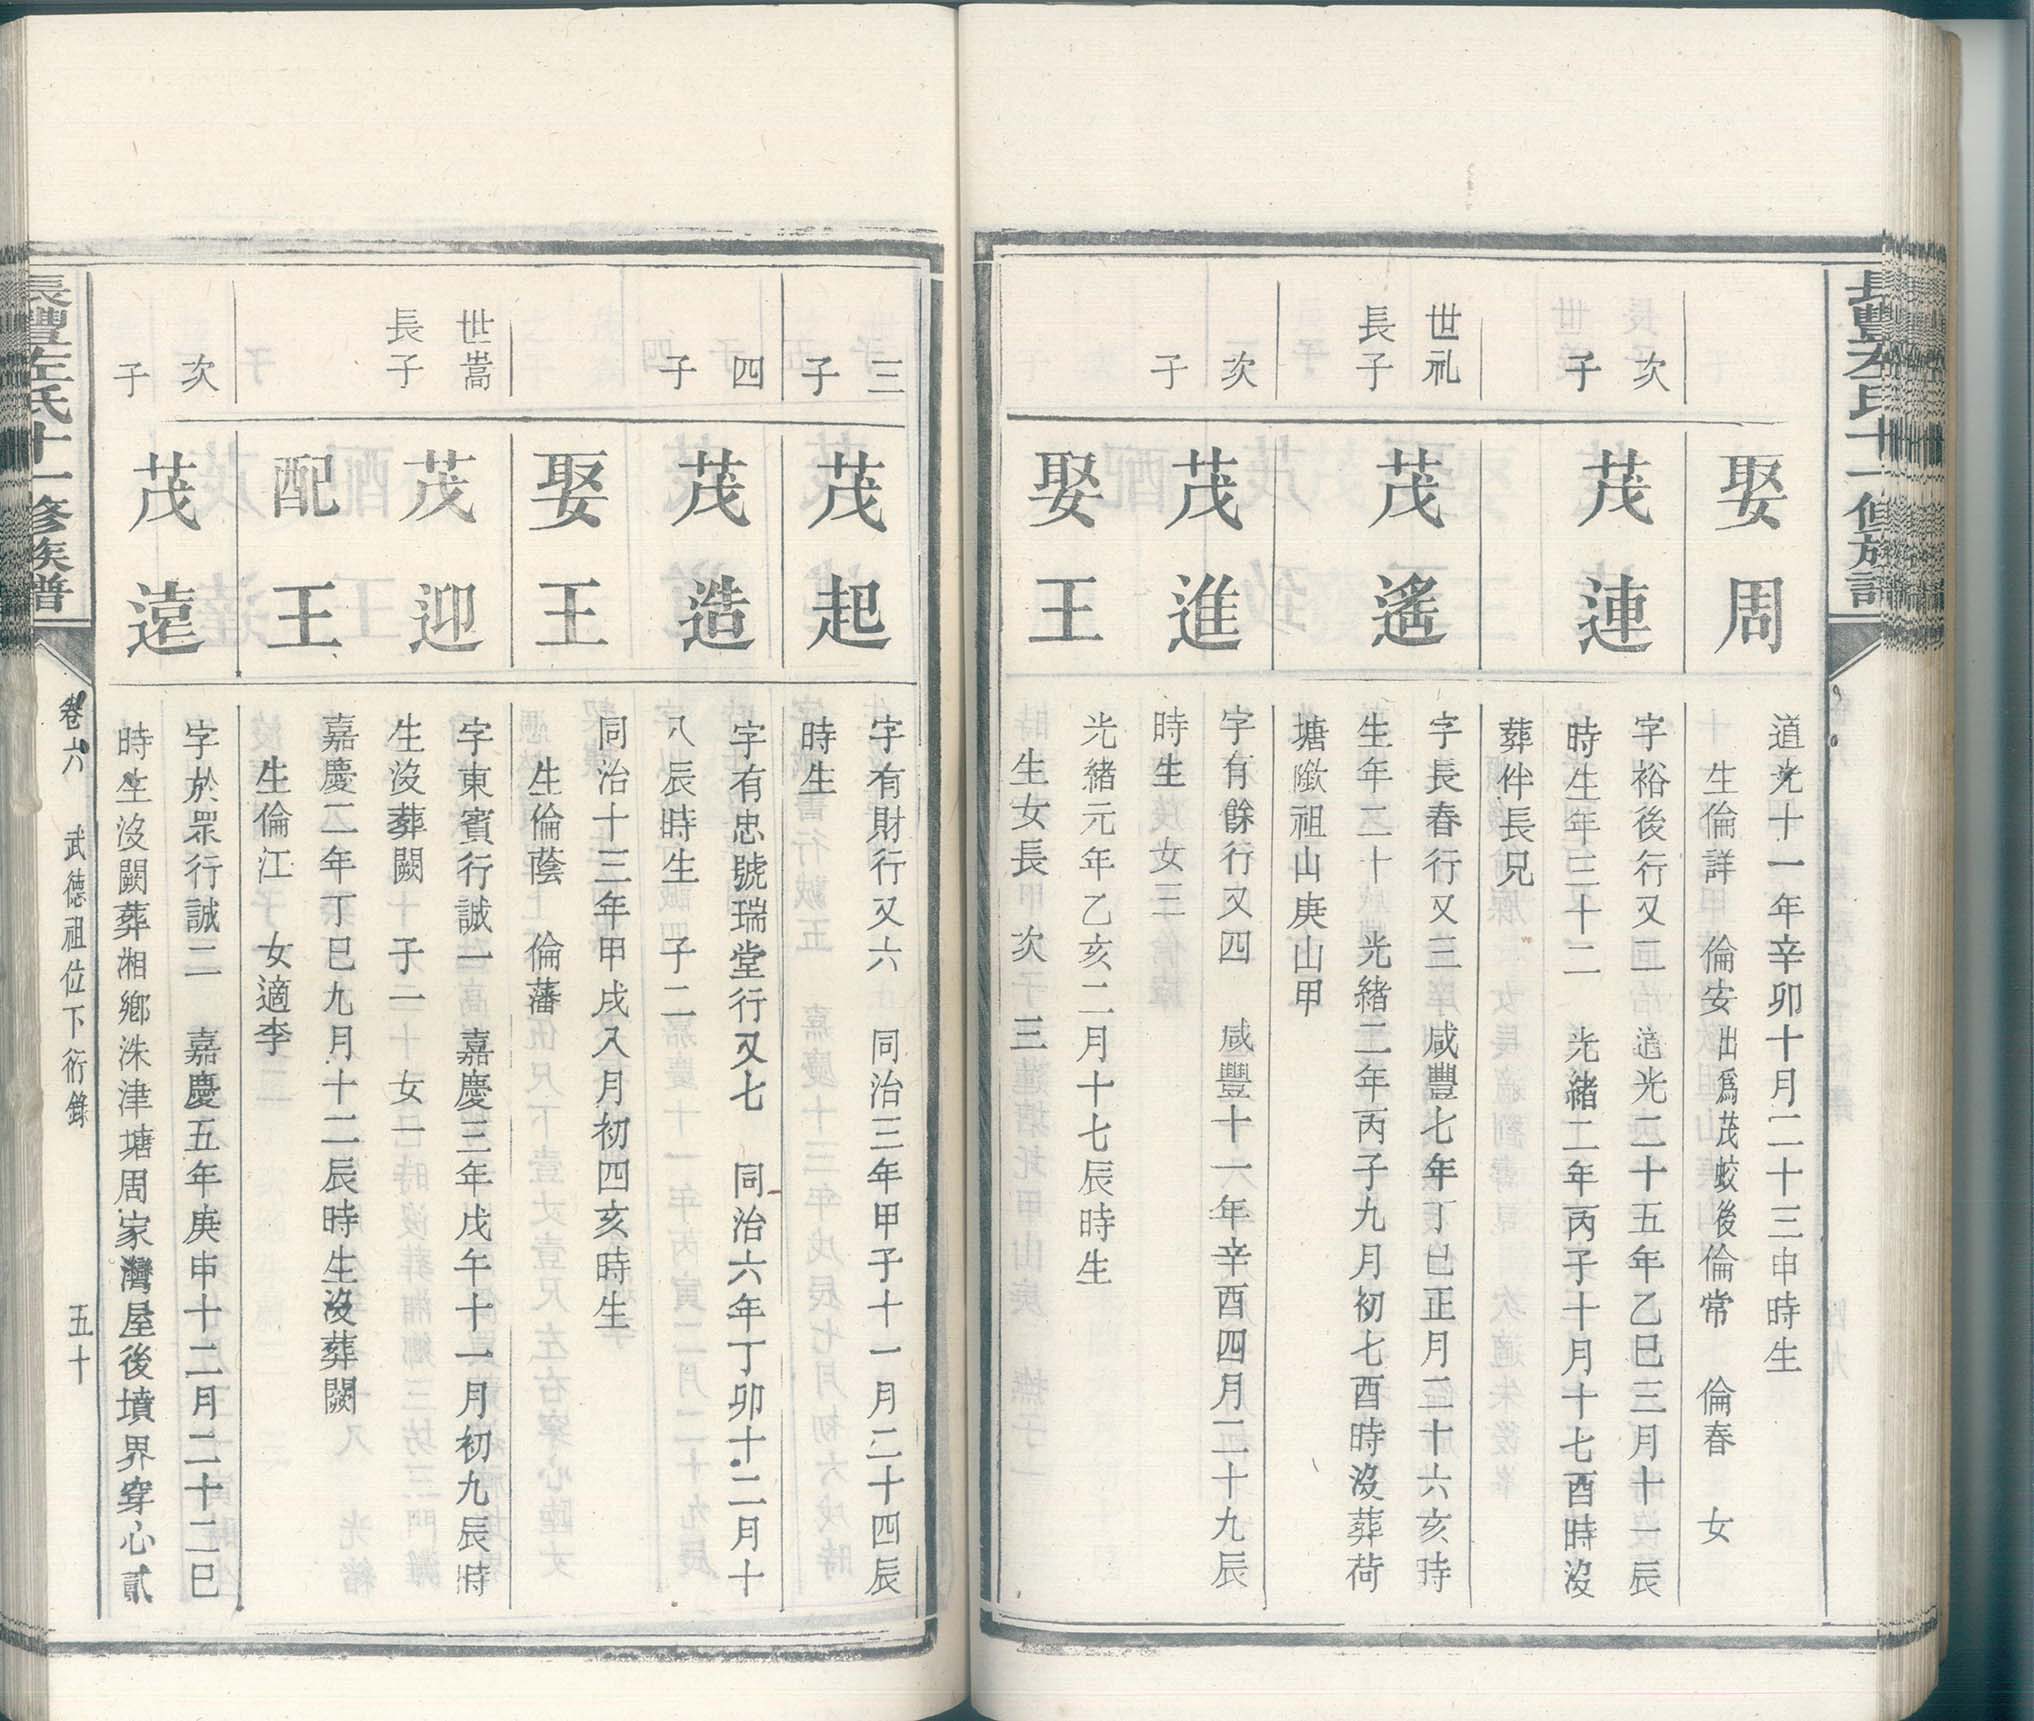 長豐左氏十一修族譜
娶周
道光十一年辛卯十月二十三申時生
生倫詳 倫安出爲茂蛟後倫常 倫春 女
次子
茂連
字裕後行又二 道光二十五年乙巳三月十一辰
時生年三十二 光緒二年丙子十月十七酉時沒
葬伴長兄
世礼長子
茂遙
字長春行又三 咸豐七年丁巳正月二十六亥時
生年二十 光緒二年丙子九月初七酉時沒葬荷
塘歛祖山庚山甲
次子
茂進
字有餘行又四 咸豐十一年辛酉四月二十九辰
時生
娶王
光緒元年乙亥二月十七辰時生
生女長 次 三
三子
茂起
字有財行又六 同治三年甲子十一月二十四辰
時生
四子
茂造
字有忠號瑞堂行又七 同治六年丁卯十二月十
八辰時生 子二
娶王
同治十三年甲戌八月初四亥時生
生倫蔭 倫藩
世嵩長子
茂迎
字東賓行誠一 嘉慶三年戊午十一月初九辰時
生沒葬闕 子一 女一
配王
嘉慶二年丁巳九月十二辰時生沒葬闕
生倫江 女適李
次子
茂遠
字於眾行誠二 嘉慶五年庚申十二月二十二巳
時生沒闕葬湘鄉洙津塘周家灣屋後墳界穿心貳
長豐左氏十一修族譜
卷六 武德祖位下衍錄 五十